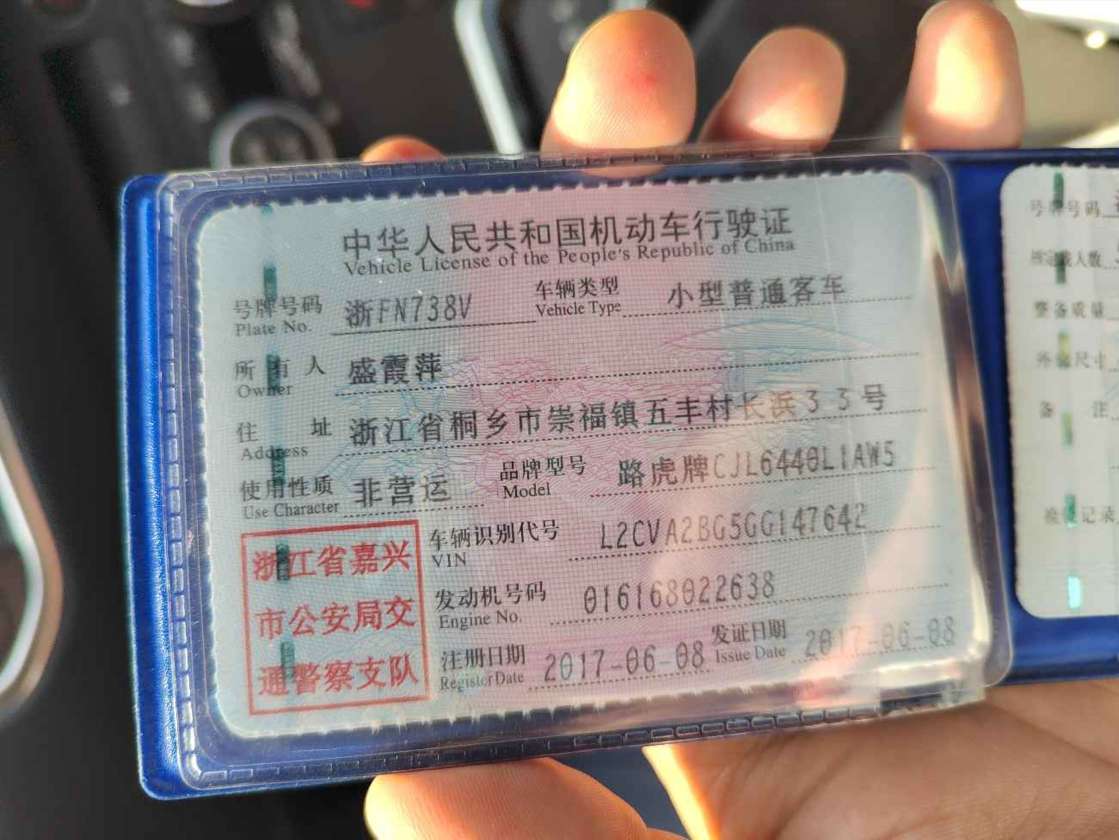 中华人民共和国机动车行驶证
Vehicle License of the People's Republic of China
号牌号码 浙FN738V 车辆类型 小型普通客车
Plate No. Vehicle Type
所有人 盛霞萍
Owner
住址 浙江省桐乡市崇福镇五丰村长浜33号
Address
使用性质 非营运 品牌型号 路虎牌CJL6440L1AW5
Use Character Model
浙江省嘉兴
市公安局交
通警察支队
车辆识别代号 L2CVA2BG5GG147642
VIN
发动机号码 016168022638
Engine No.
注册日期 2017-06-08 发证日期 2017-06-08
Register Date Issue Date
号牌号码
核定载人数
整备质量
外廓尺寸
备注
检验记录